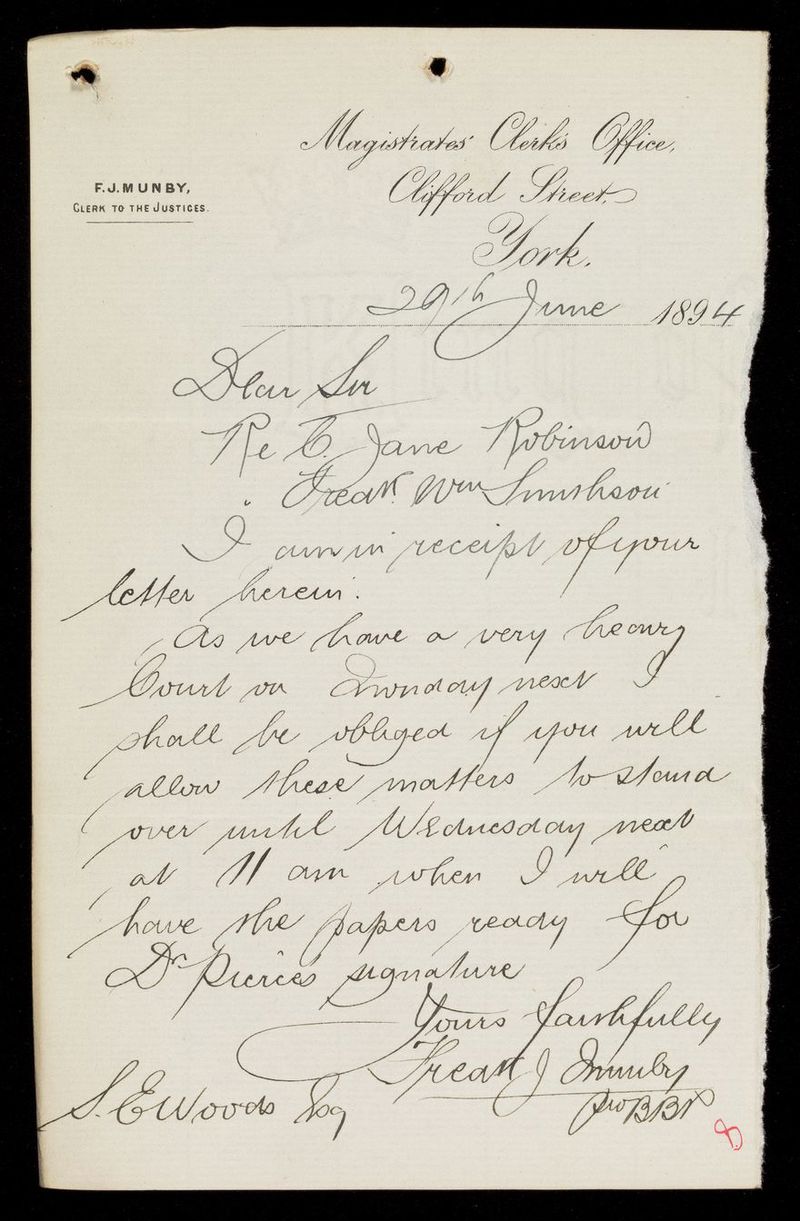 Magistrates' Clerk's Office,
Clifford Street,
York.
F.J. MUNBY,
CLERK TO THE JUSTICES.
29th June 1894
Dear Sir
Re C. Jane Robinson
" Fredk Wm Smithson
I am in receipt of your
letter herein.
As we have a very heavy
Court on Monday next I
shall be obliged if you will
allow these matters to stand
over until Wednesday next
at 11 am when I will
have the papers ready for
Dr Pierces signature
Yours faithfully
Fredk J Munby
pro
S. E Woods Esq
8